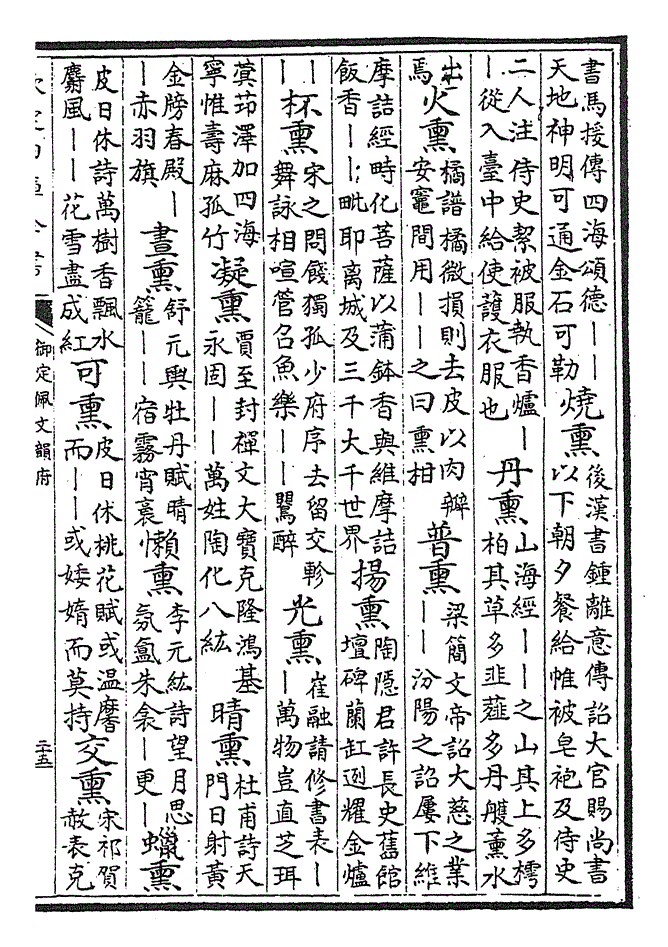 書馬援傳四海頌德——天地神明可通金石可勒 燒熏 後漢書鍾離意傳詔大官賜尚書以下朝夕餐給帷被皂袍及侍史
二人注侍史絜被服執香爐——從入臺中給使護衣服也 丹熏 山海經——之山其上多樗柏其草多韭薤多丹雘薰水
出焉 火熏 橘譜橘微損則去皮以肉瓣安竈間用——之曰熏柑 普熏 梁簡文帝詔大慈之業——汾陽之詔屢下維
摩詰經時化菩薩以蒲鉢香與維摩詰飯香——毗耶離城及三千大千世界 揚熏 陶隱君許長史舊館壇碑蘭缸迾耀金爐
—— 杯熏 宋之問餞獨孤少府序去留交軫舞詠相喧管召魚樂——鸎醉 光熏 崔融請修書表——萬物豈直芝珥
蓂茆澤加四海寧惟壽麻孤竹 凝熏 賈至封禪文大寶克隆鴻基永固——萬姓陶化八紘 晴熏 杜甫詩天門日射黃
金牓春殿——赤羽旗 晝熏 舒元輿牡丹賦晴籠——宿霧宵裛 懶熏 李元紘詩望月思氛氳朱衾—更— 蠟熏
皮日休詩萬樹香飄水麝風——花雪盡成紅 可熏 皮日休桃花賦或温黁而——或婑媠而莫持 交熏 宋祁賀赦表克
御定佩文韻府
二五